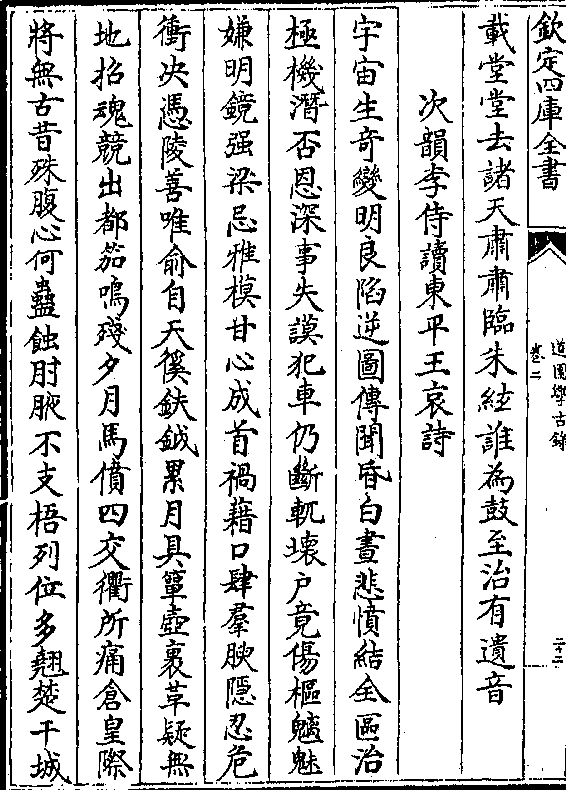 欽定四庫全書
道園學古錄
卷二
二十二
載堂堂去諸天肅肅臨朱絃誰為鼓至治有遺音
次韻李侍讀東平王哀詩
宇宙生奇變明良陷逆圖傳聞昏白晝悲憤結全區治
極機潛否恩深事失謨犯車仍斷軏壊户竟傷樞魑魅
嫌明鏡强梁忌雅模甘心成首禍藉口肆羣腴隱忍危
衝决憑陵善唯俞自天徯鈇鉞累月具簞壺裹革疑無
地招魂競出都笳鳴殘夕月馬僨四交衢所痛倉皇際
將無古昔殊腹心何蠱蝕肘腋不支梧列位多翹楚干城